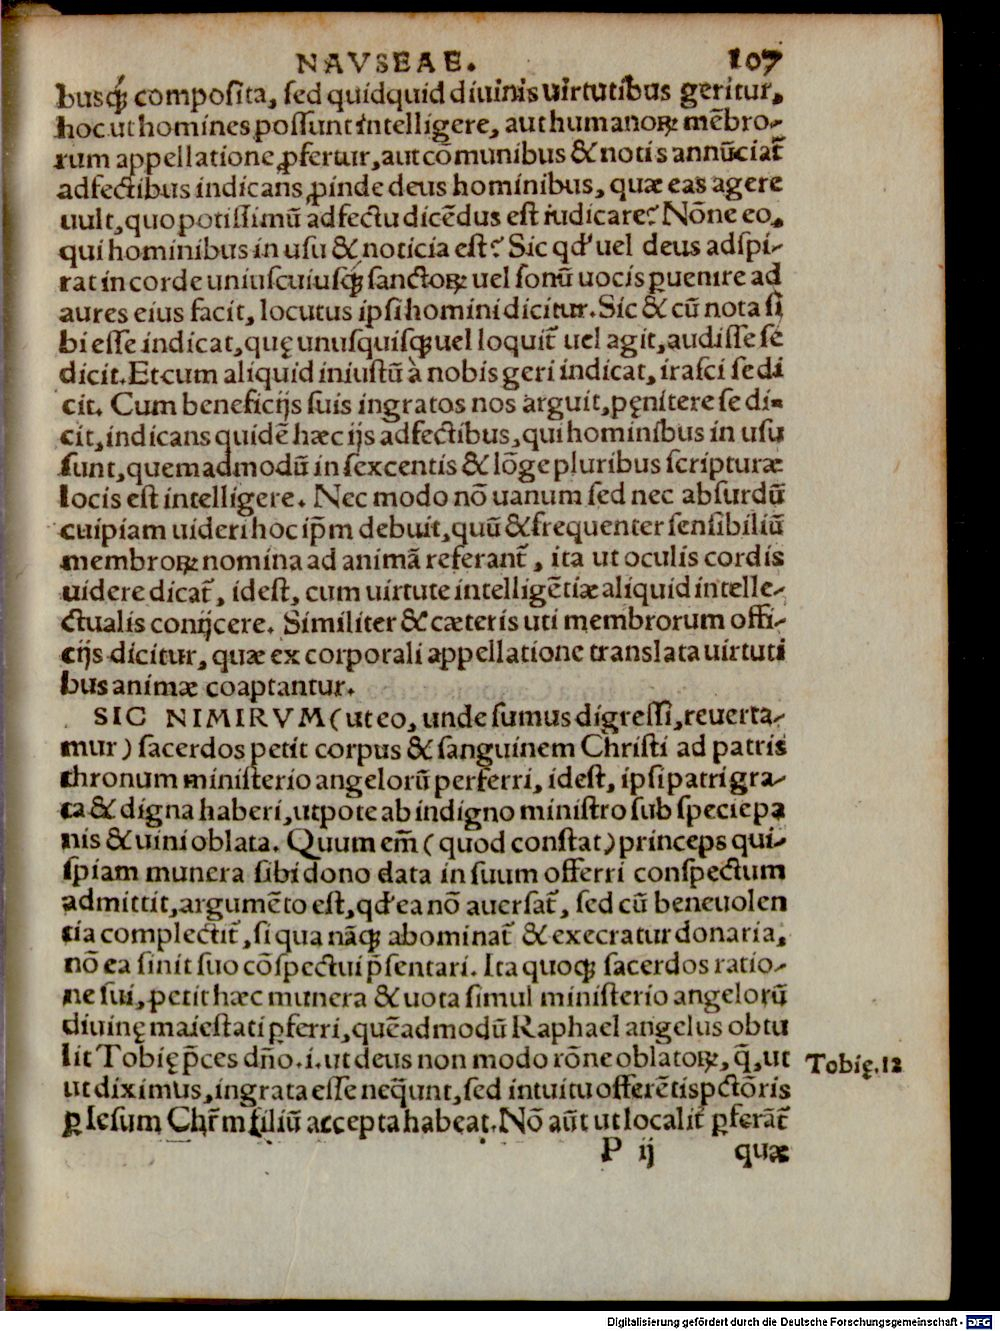 NAVSEAE. 107
busq́ꝫ composita, sed quidquid diuinis uirtutibus geritur,
hoc ut homines possunt intelligere, aut humanoꝝ mẽbro-
rum appellatione ꝓfertur, aut cõmunibus & notis annũciat̃
adfectibus indicans ꝓinde deus hominibus, quæ eas agere
uult, quo potissimũ adfectu dicẽdus est iudicare? Nõne eo,
qui hominibus in usu & noticia est? Sic qđ uel deus adspi-
rat in corde uniuscuiusq́ꝫ sanctoꝝ uel sonũ uocis ꝑuenire ad
aures eius facit, locutus ipsi homini dicitur. Sic & cũ nota si
bi esse indicat, quę unusquisqꝫ uel loquit̃ uel agit, audisse se
dicit. Et cum aliquid iniustũ à nobis geri indicat, irasci se di
cit. Cum beneficijs suis ingratos nos arguit, pęnitere se di-
cit, indicans quidẽ hæc ijs adfectibus, qui hominibus in usu
sunt, quemadmodũ in sexcentis & lõge pluribus scripturæ
locis est intelligere. Nec modo nõ uanum sed nec absurdũ
cuipiam uideri hoc ip̃m debuit, quũ & frequenter sensibiliũ
membroꝝ nomina ad animã referant̃, ita ut oculis cordis
uidere dicat̃, idest, cum uirtute intelligẽtiæ aliquid intelle-
ctualis conijcere. Similiter & cæteris uti membrorum offi-
cijs dicitur, quæ ex corporali appellatione translata uirtuti
bus animæ coaptantur.
SIC NIMIRVM (ut eo, unde sumus digressi, reuerta-
mur) sacerdos petit corpus & sanguinem Christi ad patris
thronum ministerio angelorũ perferri, idest, ipsi patri gra-
ta & digna haberi, utpote ab indigno ministro sub specie pa
nis & uini oblata. Quum em̃ (quod constat) princeps qui-
spiam munera sibi dono data in suum offerri conspectum
admittit, argumẽto est, qđ ea nõ auersat̃, sed cũ beneuolen
tia complectit̃, si qua nãqꝫ abominat̃ & execratur donaria,
nõ ea sinit suo cõspectui p̃sentari. Ita quoqꝫ sacerdos ratio-
ne sui, petit hæc munera & uota simul ministerio angelorũ
diuinę maiestati ꝑferri, quẽadmodũ Raphael angelus obtu
lit Tobię p̃ces dño .i. ut deus non modo rõne oblatoꝝ, q̃, ut
ut diximus, ingrata esse neq̃unt, sed intuitu offerẽtis pctõris
ꝑ Iesum Chr̃m filiũ accepta habeat. Nõ aũt ut localit̃ ꝑferãt̃
Tobię. 12
P ij quæ
Digitalisierung gefördert durch die Deutsche Forschungsgemeinschaft - DFG